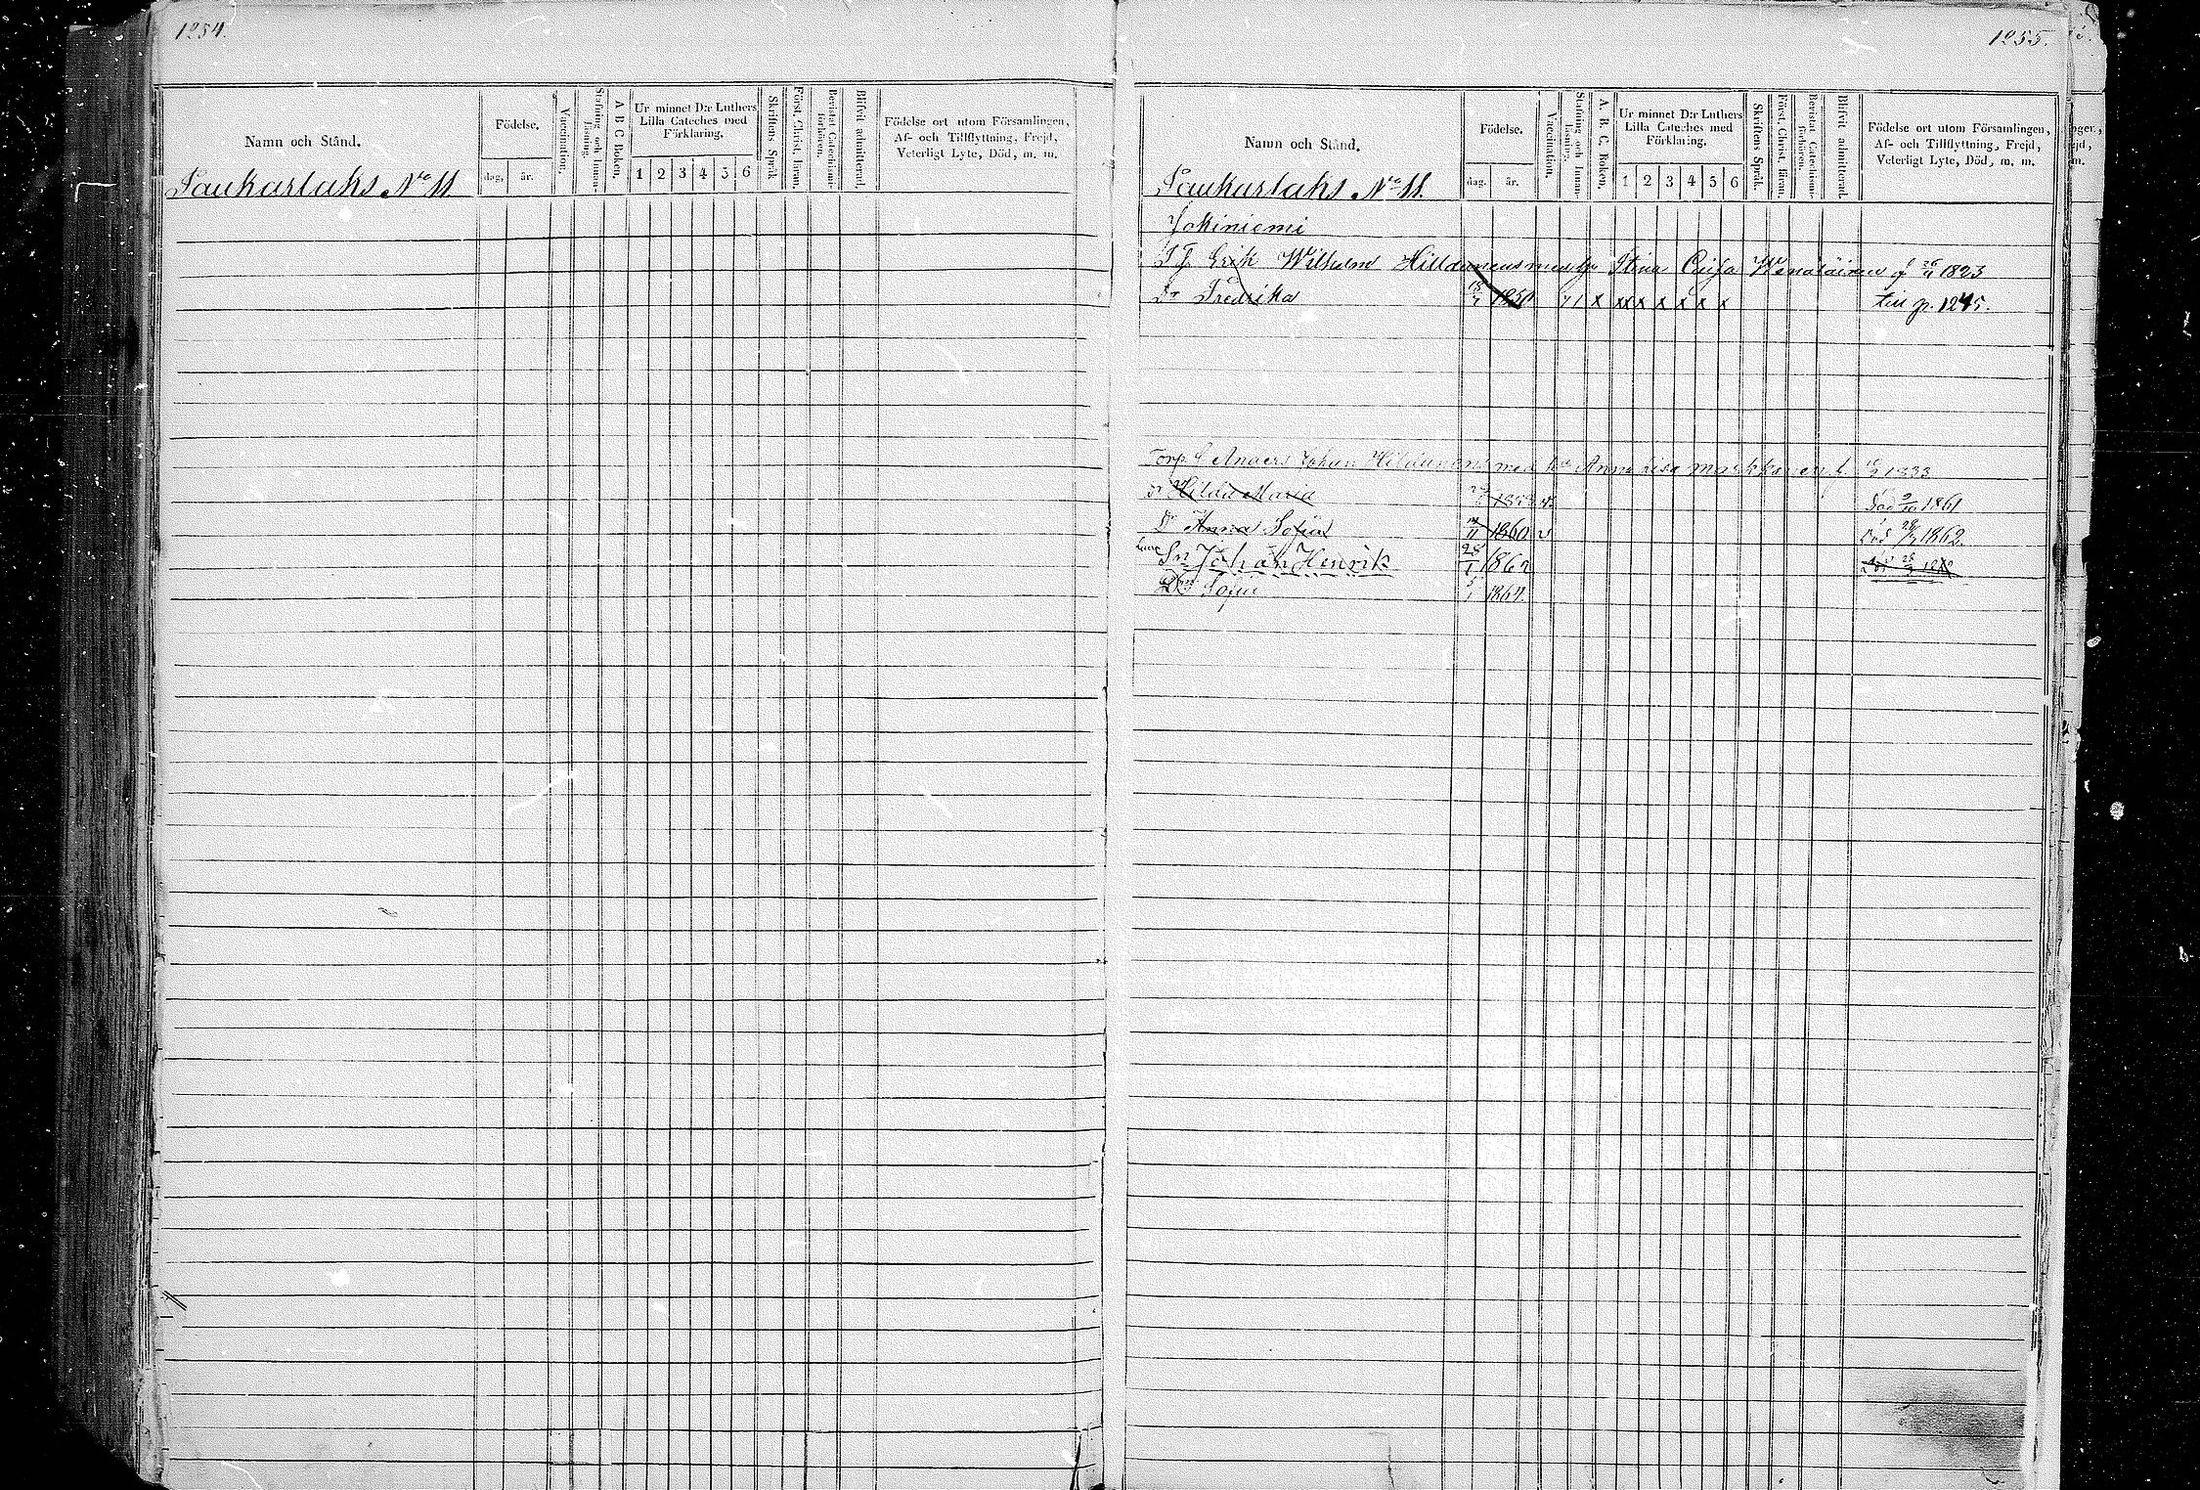 1254.
Namn och Stånd.
Födelse.
dag. år.
Vaccination.
Stafning och Innanläsning.
A B C Boken.
Ur minnet D:r Luthers Lilla Cateches med Förklaring.
1 2 3 4 5 6
Skriftens Språk
Först. Christ. läran.
Bevistat Catechismiförhören.
Blifvit admitterad.
Födelse ort utom Församlingen,
Af- och Tillflyttning, Frejd,
Veterligt Lyte, Död, m. m.
Saukarlaks No 11.
1255.
Namn och Stånd.
Födelse.
dag. år.
Vaccination.
Stafning och Innanläsning.
A. B. C. Boken.
Ur minnet D:r Luthers Lilla Cateches med Förklaring.
1 2 3 4 5 6
Skriftens Språk.
Först. Christ. läran.
Bevistat Catechismiförhören.
Blifvit admitterad.
Födelse ort utom Församlingen,
Af- och Tillflyttning, Frejd,
Veterligt Lyte, Död, m. m.
Saukarlaks No 11.
Jokiniemi
Erik Wilhelm Hilldanens med hu Stina Caisa f 1823
Dr Fredrika 1850 x x x x x x x till p. 1245.
Torp. Anders Johan Hildanens med hu Anna Lisa Markkanen f. 1833
Dr Hilda Maria Död 1861
Dr Anna Sofia 11 1860 v Död 28 1862.
Sn Johan Henrik 28/1 1862
Dr Sofia 5/1 1864.